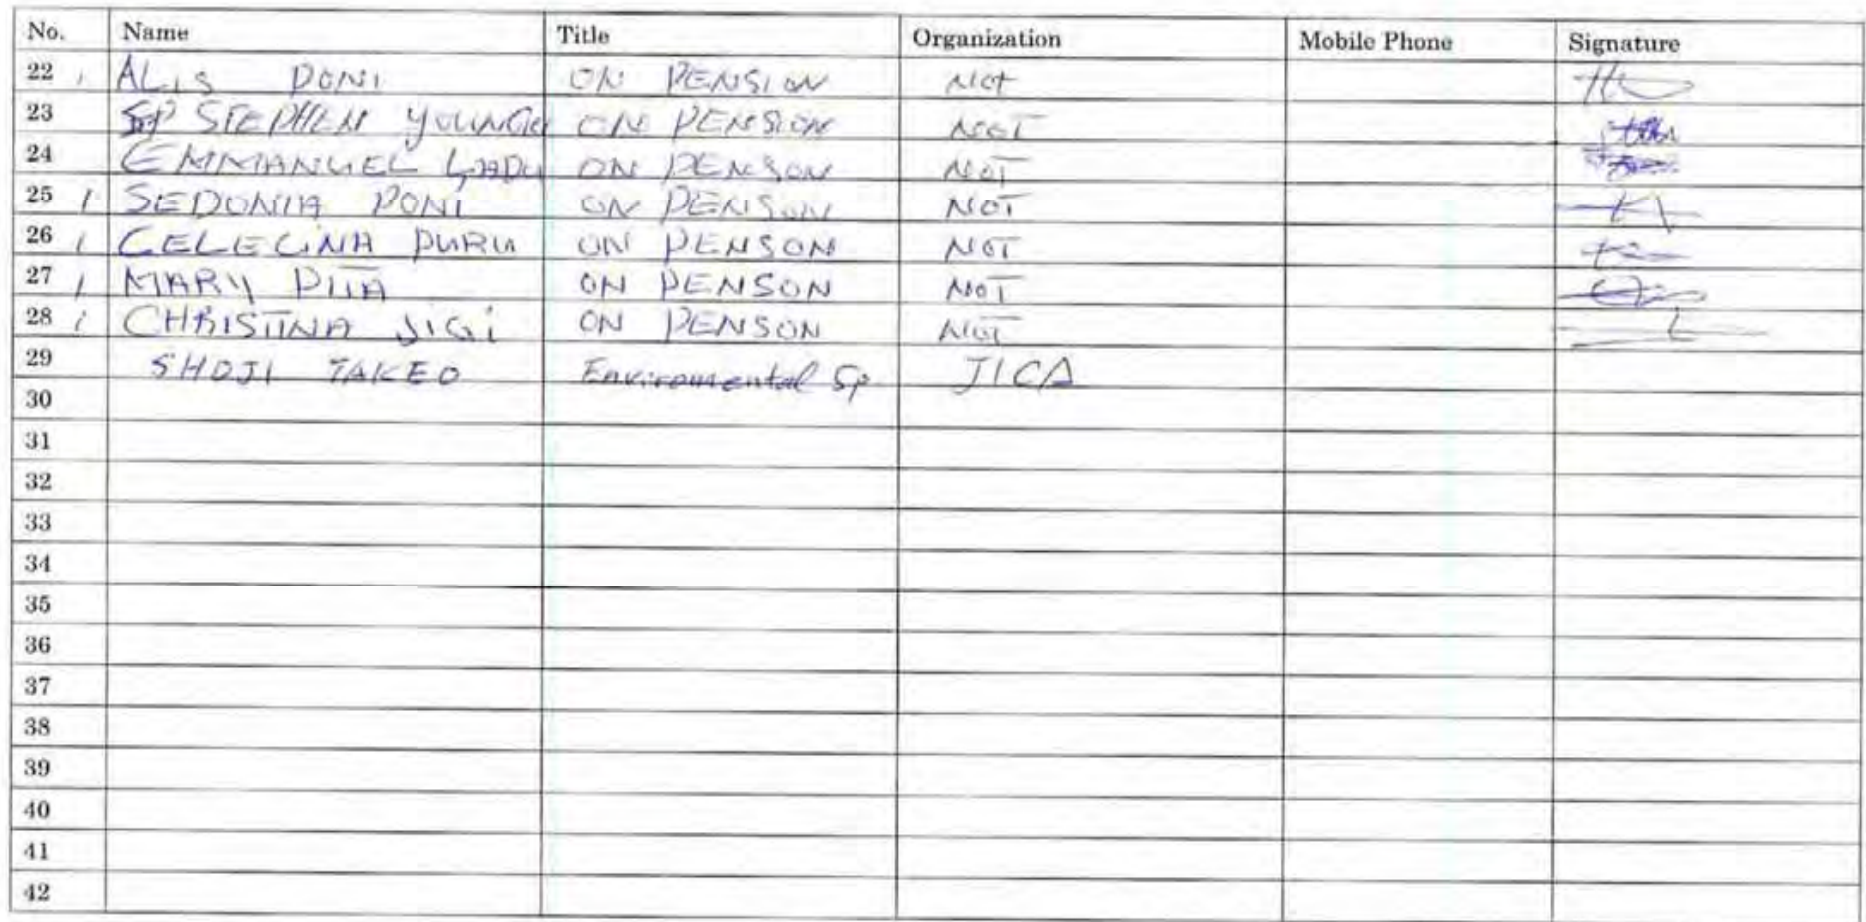 No. Name Title Organization Mobile Phone Signature
22 ALIS PONI ON PENSION Not
23 STEPHEN YOUNGE ON PENSION NOT
24 EMMANUEL LADU ON PENSON NOT
25 SEDONIA PONI ON PENSON NOT
26 CELECINA PURU ON PENSON NOT
27 MARY PITA ON PENSON NOT
28 CHRISTINA JIGI ON PENSON NOT
29 SHOJI TAKEO Enviromental Sp. JICA
30
31
32
33
34
35
36
37
38
39
40
41
42